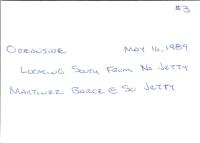 #3
OCEANSIDE MAY 16, 1989
LOOKING SOUTH FROM NO JETTY
MARTINEZ BARGE @ SO JETTY